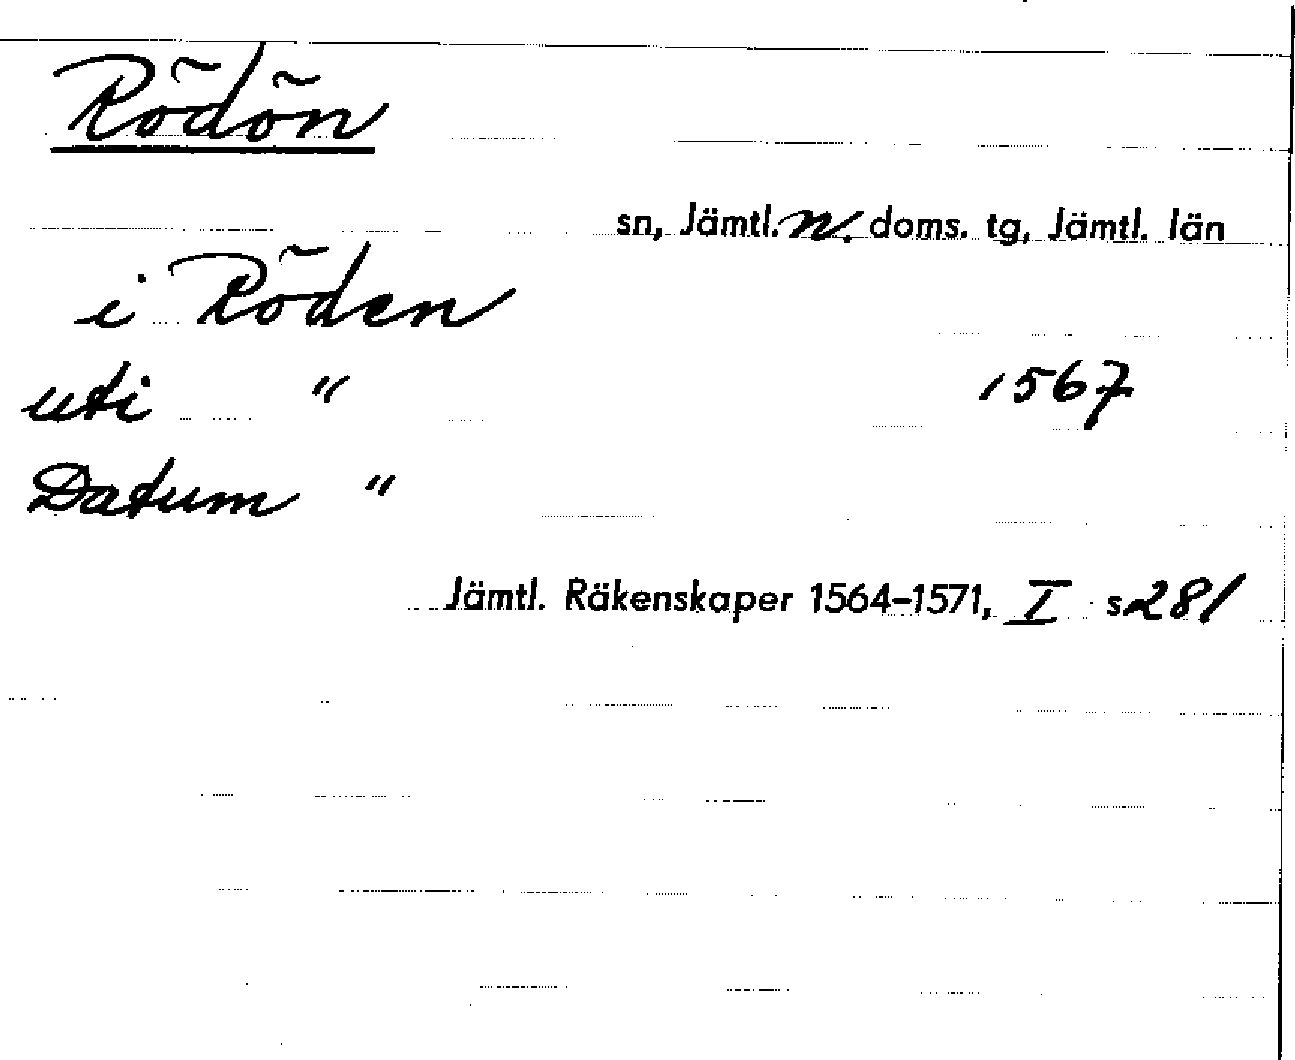 Rödön
sn, Jämtl. n. doms. tg, Jämtl. län
i Röden
uti " 1567
Datum "
Jämtl. Räkenskaper 1564–1571, I s 281